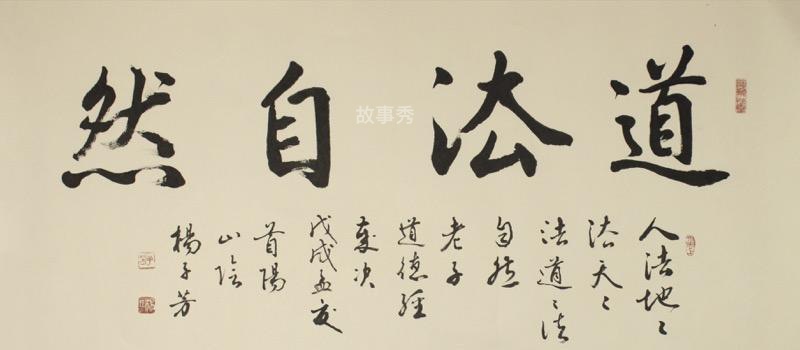 道法自然
故事秀
人法地〻
法天〻
法道〻法
自然
老子
道德經
戊戌孟夏
首陽
山陰
楊子芳